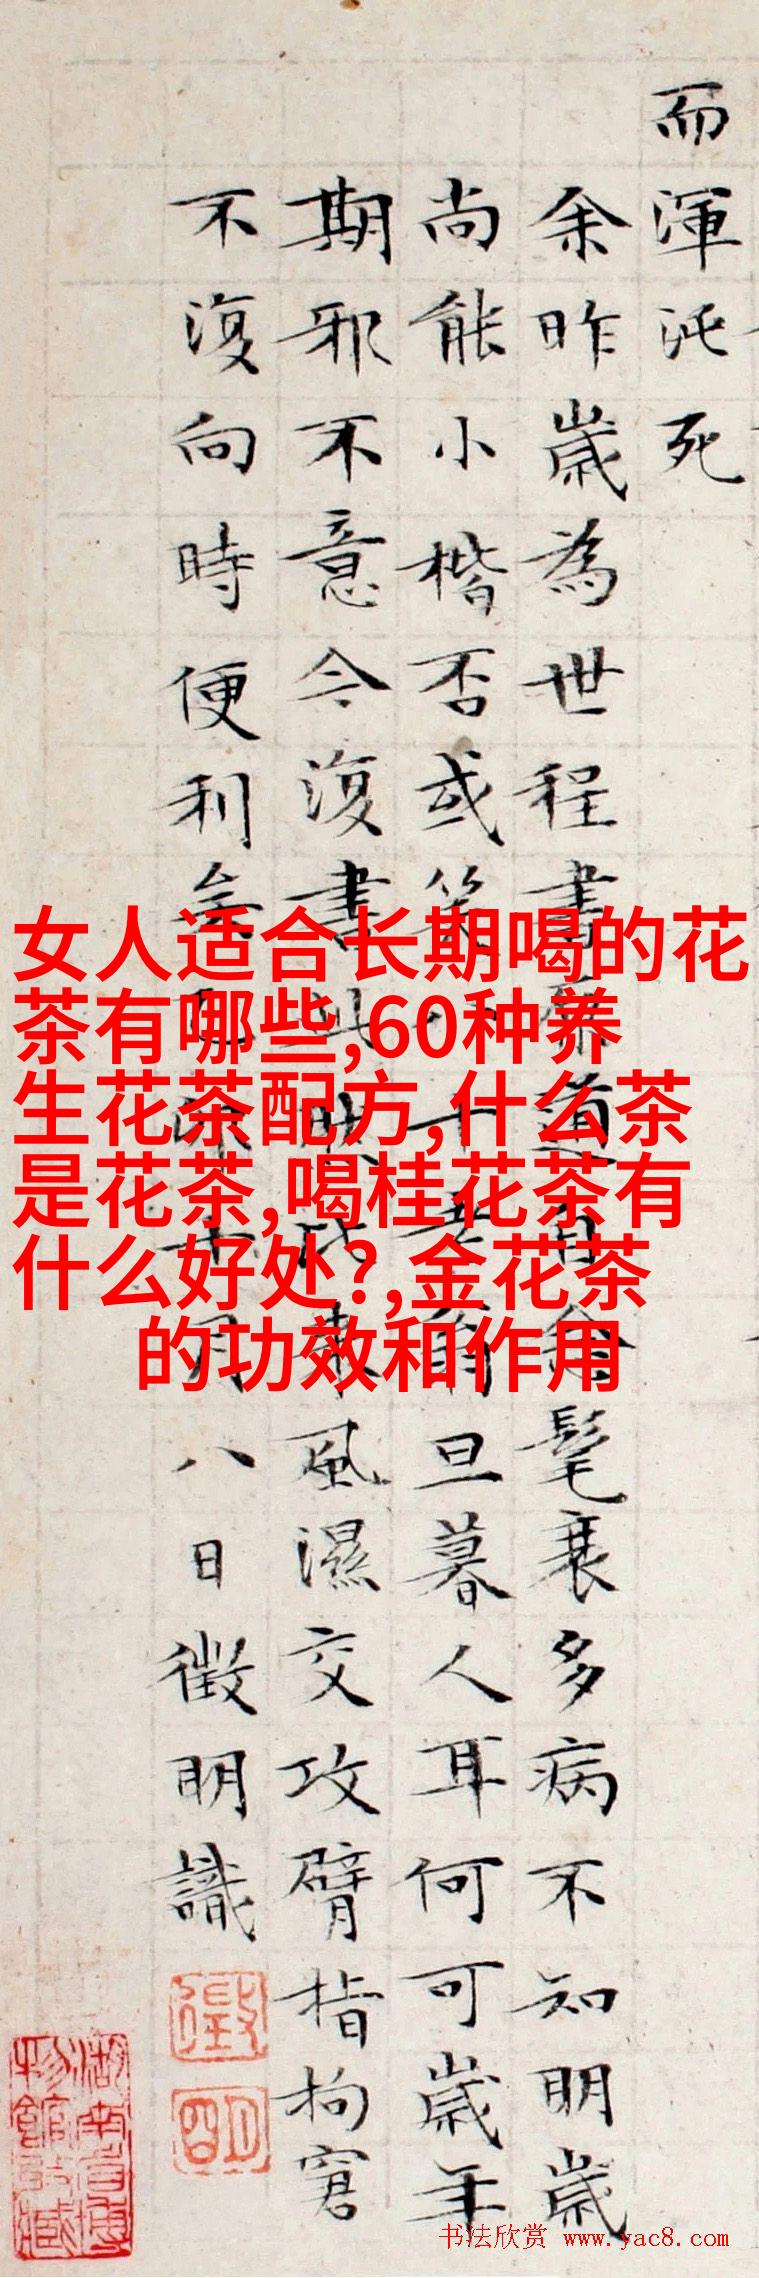 而渾沌死
余昨歲為世程書道髦衰多病不知明歲
尚能小楷否或笑十旦暮人耳何可歲年
期邪不意今復書此風濕交攻臂指拘窘
不復向時便利月八日徵明識
徵
明
女人适合长期喝的花
茶有哪些,60种养
生花茶配方,什么茶
是花茶,喝桂花茶有
什么好处?,金花茶
的功效和作用
书法欣赏 www.yac8.com